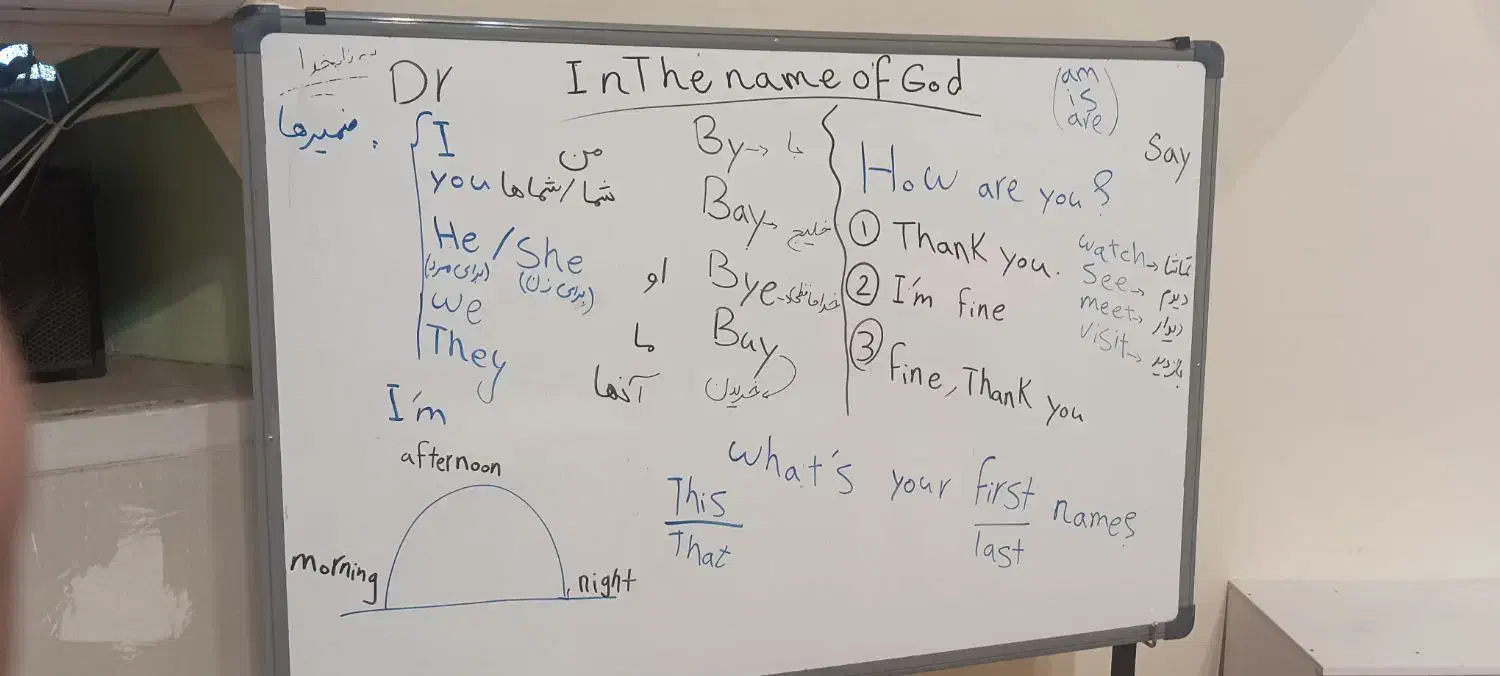 Dr
In The name of God
am
is
are
Say
ضمیرها:
I من
you شما/شماها
He / She او
(برای مرد) (برای زن)
we ما
They آنها
I'm
By → با
Bay → خلیج
Bye → خداحافظی
Buy → خریدن
How are you?
① Thank you.
② I'm fine
③ fine, Thank you
watch → تماشا
See → دیدم
meet → دیدار
visit → بازدید
afternoon
morning
night
This
That
what's your first name?
last